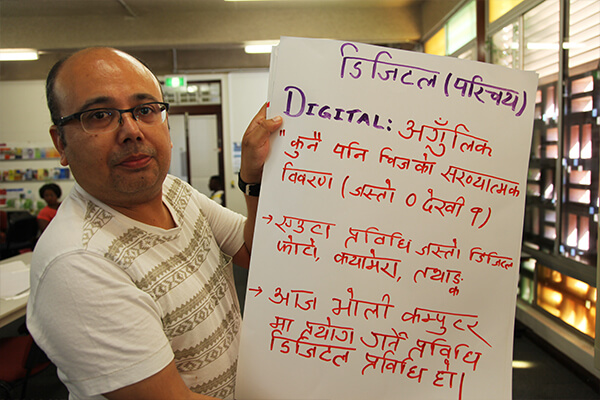 डिजिटल (परिचय)
DIGITAL: अगुँलिक
"कुनै पनि चिजको सख्यात्मक
विवरण (जस्तो ० देखी ९)
→ एउटा प्रविधि जस्तो डिजिटल
फोटो, क्यामेरा, तथ्याङ्क
→ आज भोली कम्पुटर
मा प्रयोग गर्ने प्रविधि
डिजिटल प्रविधि हो।